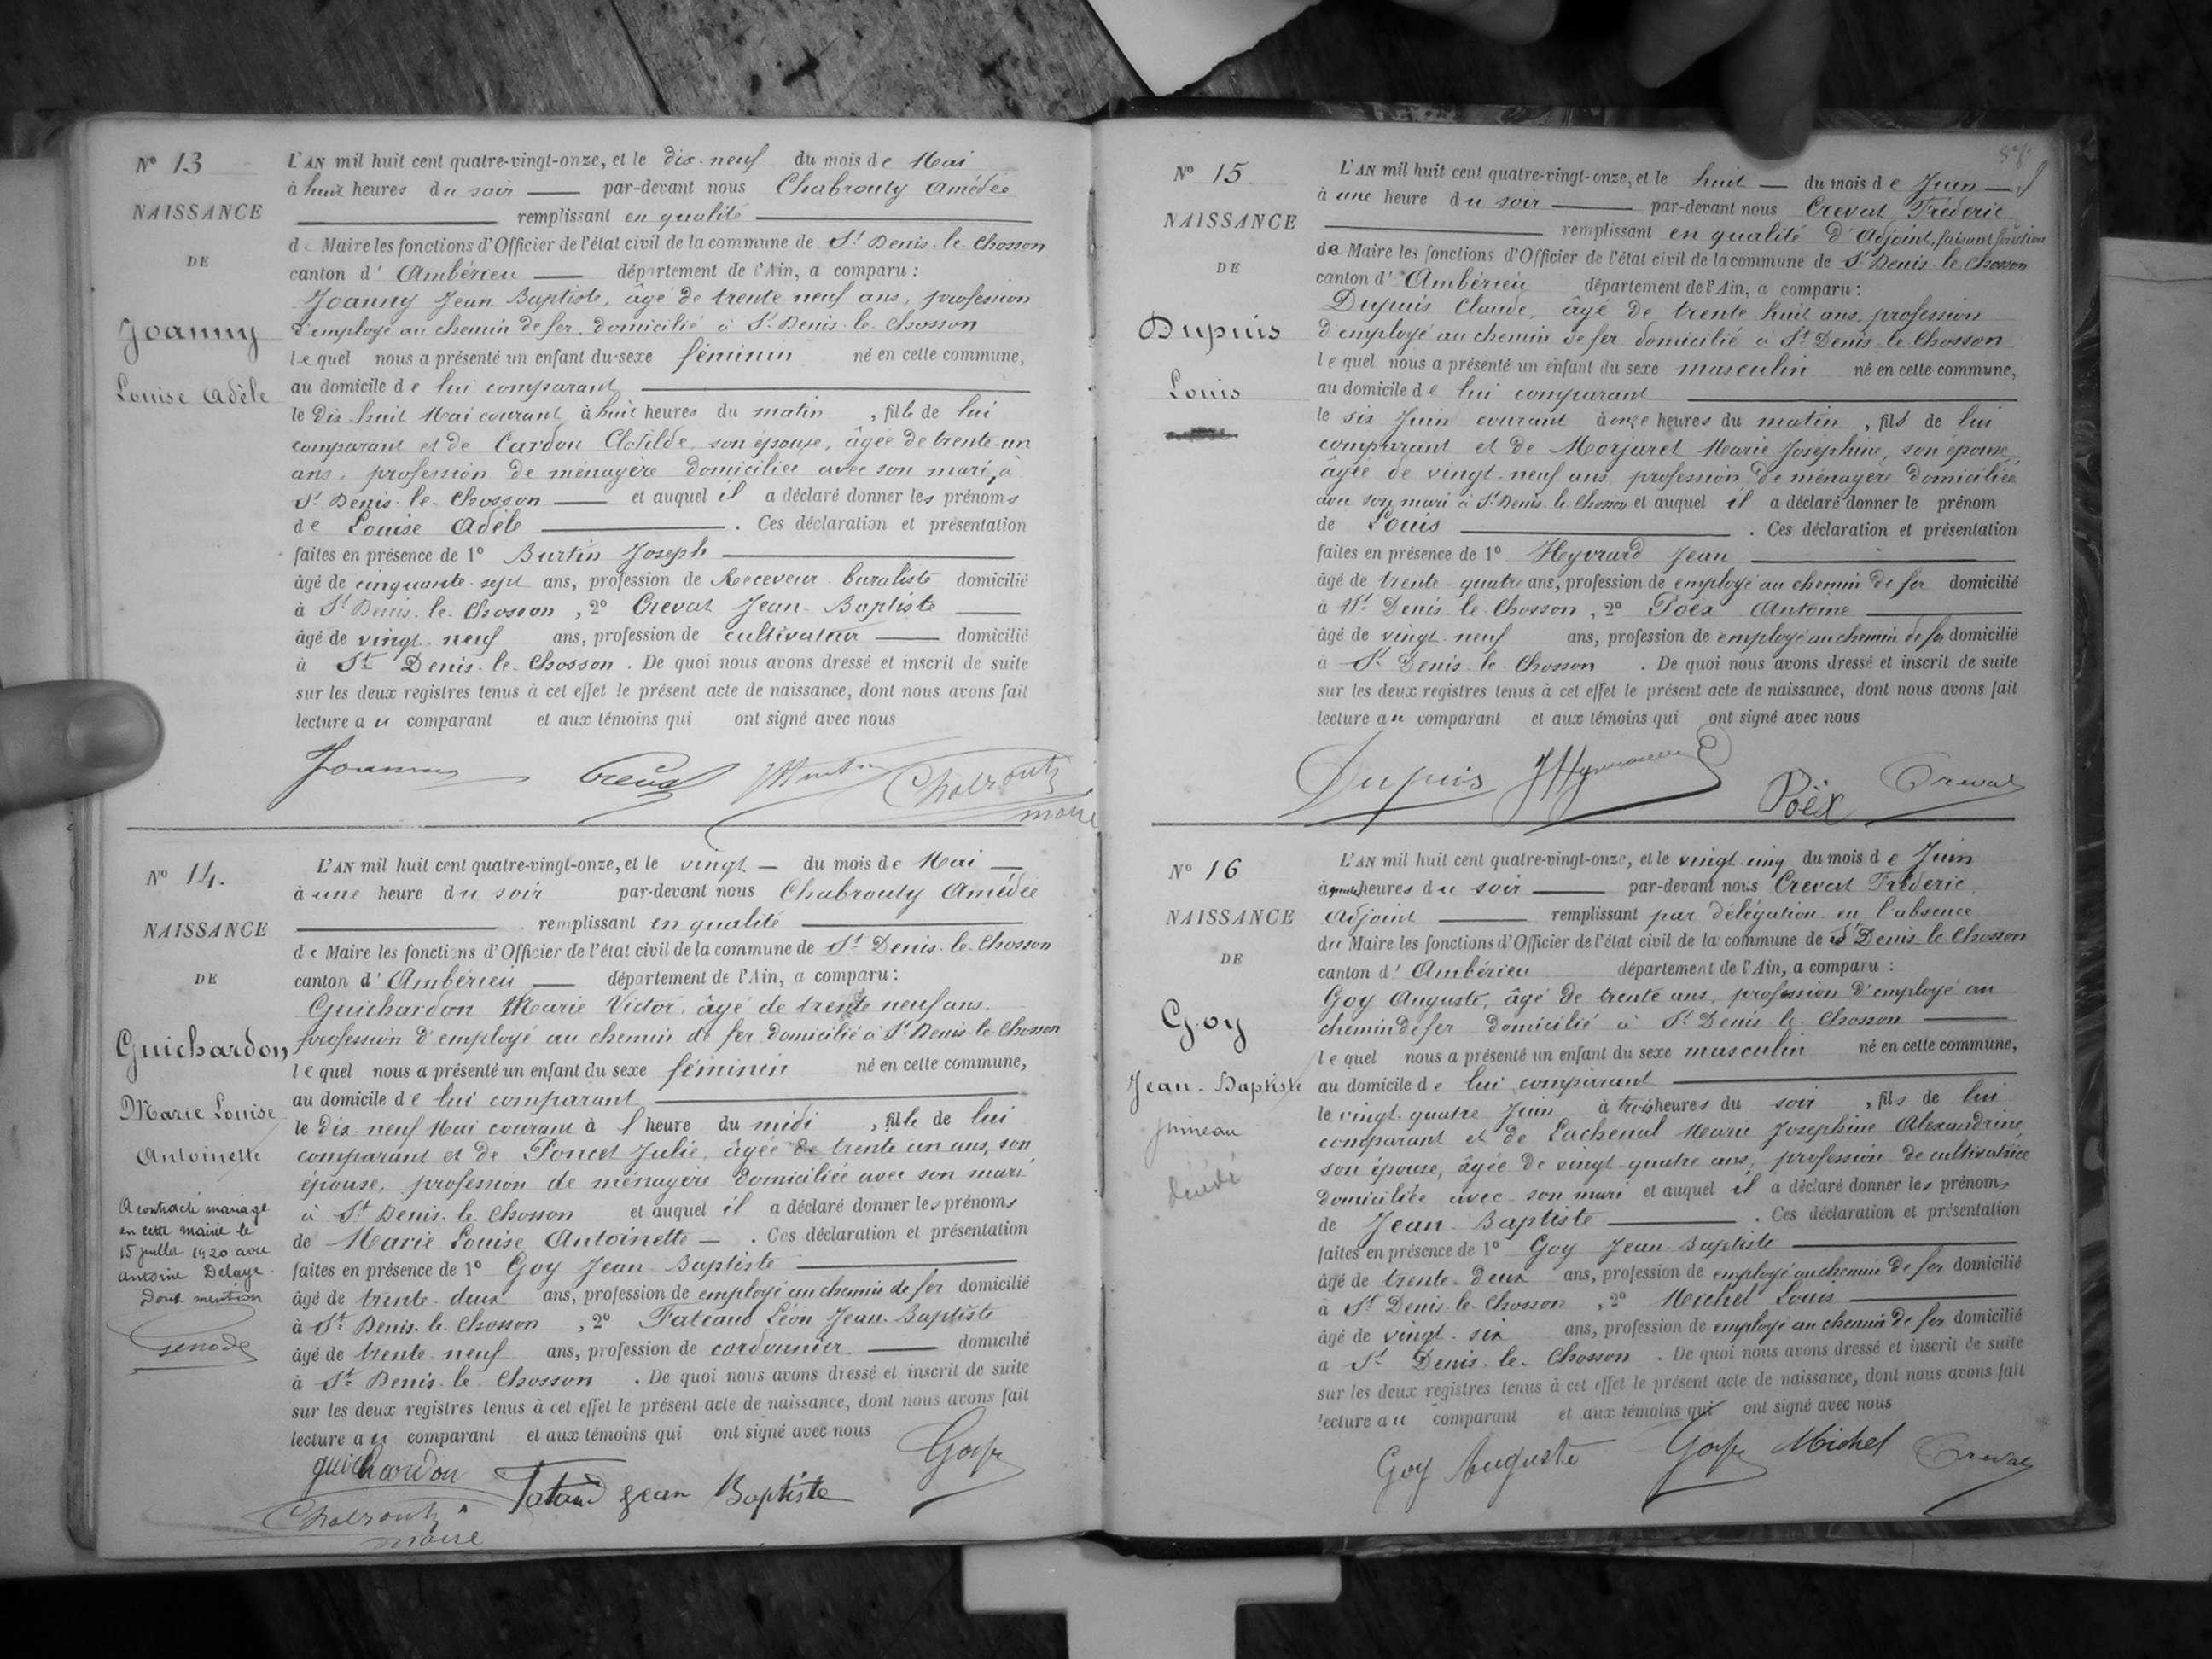 N° 13
NAISSANCE
DE
Joanny
Louise Adèle
L'AN mil huit cent quatre-vingt-onze, et le dix-neuf du mois de Mai
à huit heures du soir — par-devant nous Chabrouty Amédée
— remplissant en qualité —
de Maire les fonctions d'Officier de l'état civil de la commune de St Denis-le-Chosson
canton d'Ambérieu — département de l'Ain, a comparu :
Joanny Jean Baptiste, âgé de trente neuf ans, profession
d'employé au chemin de fer, domicilié à St Denis-le-Chosson
lequel nous a présenté un enfant du sexe féminin né en cette commune,
au domicile de lui comparant —
le dix huit Mai courant à huit heures du matin, fille de lui
comparant et de Cardon Clotilde son épouse, âgée de trente-un
ans, profession de ménagère domiciliée avec son mari, à
St Denis-le-Chosson — et auquel il a déclaré donner les prénoms
de Louise Adèle — . Ces déclaration et présentation
faites en présence de 1° Burtin Joseph —
âgé de cinquante-sept ans, profession de Receveur buraliste domicilié
à St Denis-le-Chosson, 2° Crevat Jean-Baptiste —
âgé de vingt-neuf ans, profession de cultivateur — domicilié
à St Denis-le-Chosson. De quoi nous avons dressé et inscrit de suite
sur les deux registres tenus à cet effet le présent acte de naissance, dont nous avons fait
lecture au comparant et aux témoins qui ont signé avec nous
Joanny Crevat Burtin Chabrouty
maire
N° 14.
NAISSANCE
DE
Guichardon
Marie Louise
Antoinette
A contracté mariage
en cette mairie le
15 juillet 1920 avec
Antoine Delaye.
Dont mention
L'AN mil huit cent quatre-vingt-onze, et le vingt — du mois de Mai —
à une heure du soir par-devant nous Chabrouty Amédée
— remplissant en qualité —
de Maire les fonctions d'Officier de l'état civil de la commune de St Denis-le-Chosson
canton d'Ambérieu — département de l'Ain, a comparu :
Guichardon Marie Victor, âgé de trente neuf ans,
profession d'employé au chemin de fer domicilié à St Denis-le-Chosson
lequel nous a présenté un enfant du sexe féminin né en cette commune,
au domicile de lui comparant —
le dix-neuf Mai courant à 1 heure du midi, fille de lui
comparant et de Poncet Julie, âgée de trente un ans, son
épouse, profession de ménagère domiciliée avec son mari
à St Denis-le-Chosson et auquel il a déclaré donner les prénoms
de Marie Louise Antoinette — . Ces déclaration et présentation
faites en présence de 1° Goy Jean-Baptiste —
âgé de trente-deux ans, profession de employé au chemin de fer domicilié
à St Denis-le-Chosson, 2° Tateaud Léon Jean-Baptiste
âgé de trente-neuf ans, profession de cordonnier — domicilié
à St Denis-le-Chosson. De quoi nous avons dressé et inscrit de suite
sur les deux registres tenus à cet effet le présent acte de naissance, dont nous avons fait
lecture au comparant et aux témoins qui ont signé avec nous
guichardon Goy
Jean Baptiste
Chabrouty
maire
N° 15
NAISSANCE
DE
Dupuis
Louis
L'AN mil huit cent quatre-vingt-onze, et le huit — du mois de Juin —
à une heure du soir — par-devant nous Crevat Fréderic
— remplissant en qualité d'Adjoint, faisant fonction
de Maire les fonctions d'Officier de l'état civil de la commune de St Denis-le-Chosson
canton d'Ambérieu département de l'Ain, a comparu :
Dupuis Claude, âgé de trente huit ans, profession
d'employé au chemin de fer domicilié à St Denis-le-Chosson
lequel nous a présenté un enfant du sexe masculin né en cette commune,
au domicile de lui comparant —
le six Juin courant à onze heures du matin, fils de lui
comparant et de Morjaret Marie Joséphine, son épouse,
âgée de vingt-neuf ans, profession de ménagère domiciliée
avec son mari à St Denis-le-Chosson et auquel il a déclaré donner le prénom
de Louis — . Ces déclaration et présentation
faites en présence de 1° Heyvrard Jean —
âgé de trente-quatre ans, profession de employé au chemin de fer domicilié
à St Denis-le-Chosson, 2° Poëx Antoine —
âgé de vingt-neuf ans, profession de employé au chemin de fer domicilié
à St Denis-le-Chosson. De quoi nous avons dressé et inscrit de suite
sur les deux registres tenus à cet effet le présent acte de naissance, dont nous avons fait
lecture au comparant et aux témoins qui ont signé avec nous
Dupuis Poëx Crevat
N° 16
NAISSANCE
DE
Goy
Jean-Baptiste
jumeau
décédé
L'AN mil huit cent quatre-vingt-onze, et le vingt-cinq du mois de Juin
à quatre heures du soir — par-devant nous Crevat Fréderic,
Adjoint — remplissant par délégation en l'absence
du Maire les fonctions d'Officier de l'état civil de la commune de St Denis-le-Chosson
canton d'Ambérieu département de l'Ain, a comparu :
Goy Auguste, âgé de trente ans, profession d'employé au
chemin de fer domicilié à St Denis-le-Chosson —
lequel nous a présenté un enfant du sexe masculin né en cette commune,
au domicile de lui comparant —
le vingt-quatre Juin à trois heures du soir, fils de lui
comparant et de Lachenal Marie Josephine Alexandrine,
son épouse, âgée de vingt-quatre ans, profession de cultivatrice
domiciliée avec son mari et auquel il a déclaré donner les prénoms
de Jean-Baptiste — . Ces déclaration et présentation
faites en présence de 1° Goy Jean-Baptiste —
âgé de trente-deux ans, profession de employé au chemin de fer domicilié
à St Denis-le-Chosson, 2° Michel Louis —
âgé de vingt-six ans, profession de employé au chemin de fer domicilié
à St Denis-le-Chosson. De quoi nous avons dressé et inscrit de suite
sur les deux registres tenus à cet effet le présent acte de naissance, dont nous avons fait
lecture au comparant et aux témoins qui ont signé avec nous
Goy Auguste Goy Michel Crevat